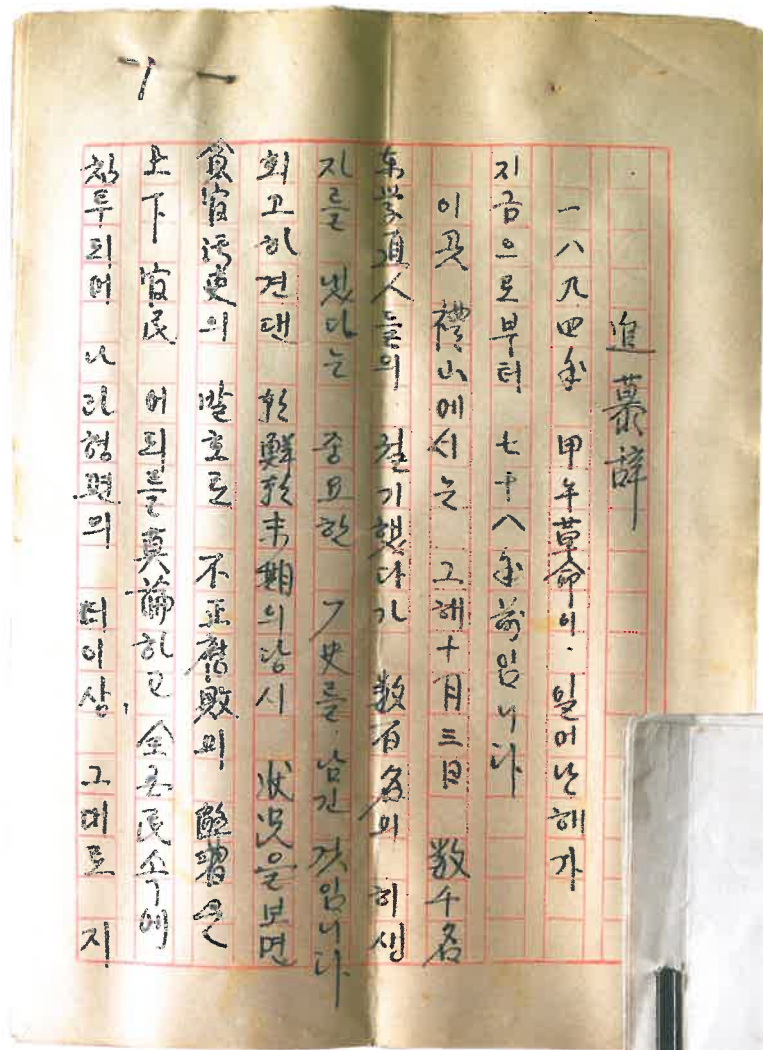 追慕辞
一八九四年 甲午革命이 일어난해가
지금으로부터 七十八年前입니다
이곳 禮山에서는 그해十月三日 数千名
东学道人들의 궐기했다가 数百名의 히생
지를 냈다는 중요한 歷史를 남긴 것입니다
회고하건댄 朝鮮朝末期의당시 状况을보면
貪官汚吏의 발호로 不正腐敗의 弊習은
上下 官民 어의를 莫論하고 全국民속에
침투되어 나라형편의 더이상, 그대로 지